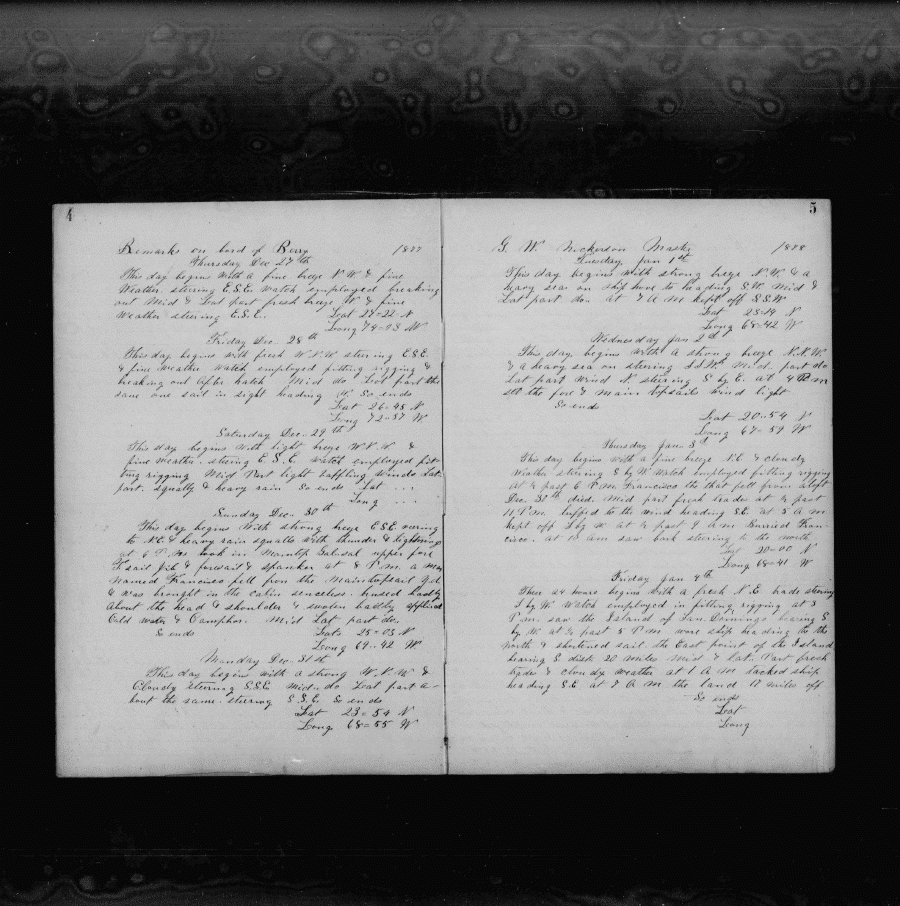 4
Remarks on bord of Berry 1877
Thursday Dec 27th
This day begins with a fine breze N.W. & fine
Weather. steering E.S.E. watch employed breaking
out Mid & Leat part fresh breze W & fine
weather steering E.S.E. Leat 27=22 N
Long 74=13 W
Friday Dec. 28th
This day begins with fresh W.N.W. steering E.S.E.
& fine weather watch employed fitting rigging &
breaking out after hatch Mid do Leat part the
same one sail in sight heading So ends
Leat 26=45 N
Long 72=57 W.
Saturday Dec. 29th
This day begins with light breze W.N.W. &
fine weather. steering E.S.E. watch employed fit-
ting rigging Mid Part light baffling winds Lat-
part. squally & heavy rain So ends Lat ...
Long ...
Sunday Dec. 30th
This day begins With strong breze E.S.E. veering
to N.E. & heavy rain squalls with thunder & lightning
at 6 P.M. took in upper fore
T.sail Jib & foresail & spanker at 8 P.M. a man
Named Francisco fell from the Maintopsail Yd
& was brought in the cabin senceless. brused badly
About the head & shoulder & swolen badly applied
Cold water & Camphor. Mid Lat part do.
So ends Lat= 25=03 N
Long 69=42 W
Monday Dec. 31st
This day begins with a strong W.N.W. &
Cloudy steering S.S.E. Mid. do Leat part a-
bout the same. steering S.S.E. So ends
Leat 23=54 N
Long 68=55 W
5
G. W. Nickerson Master 1878
Tuesday Jan 1st
This day begins with strong breze N.W. & a
heavy sea on ship hove to heading S.W. Mid &
Lat part do. at 7 A M kept off S.S.W
Leat 23=19 N
Long 68=42 W
Wednesday Jan 2d
This day begins With a strong breze N.N.W.
& a heavy sea on steering S.S.W. Mid. part do
Lat part wind N. steering S by E. at 4 P m
set the fore & main topsails wind light
So ends
Leat 20=54 N
Long 67=59 W
Thursday Jan 3d
This day begins with a fine breze N.E. & cloudy
Weather steering S by W Watch employed fitting rigging
At ½ past 6 P.M. Francisco the that fell from aloft
Dec. 30th died. Mid part fresh trades at ½ past
11 P.M. luffed to the wind heading S.E. at 5 A m
kept off S by W at ½ past 9 A m Burried Fran-
cisco. At 10 Am saw bark steering to the north
Lat 20=00 N
Long 68=41 W
Friday Jan 4th
These 24 hours begins With a fresh N.E. trade steering
S by W. Watch employed in fitting rigging at 3
P m. saw the Island of San Domingo bearing S
by W. at ½ past 5 P.M. wore ship heading to the
north & shortened sail the East point of the Island
bearing S. distc. 20 miles Mid & Lat. Part fresh
trades & cloudy weather at 1 A m tacked ship
heading S.E. at 7 A M the land 12 miles off
So ends
Leat
Long